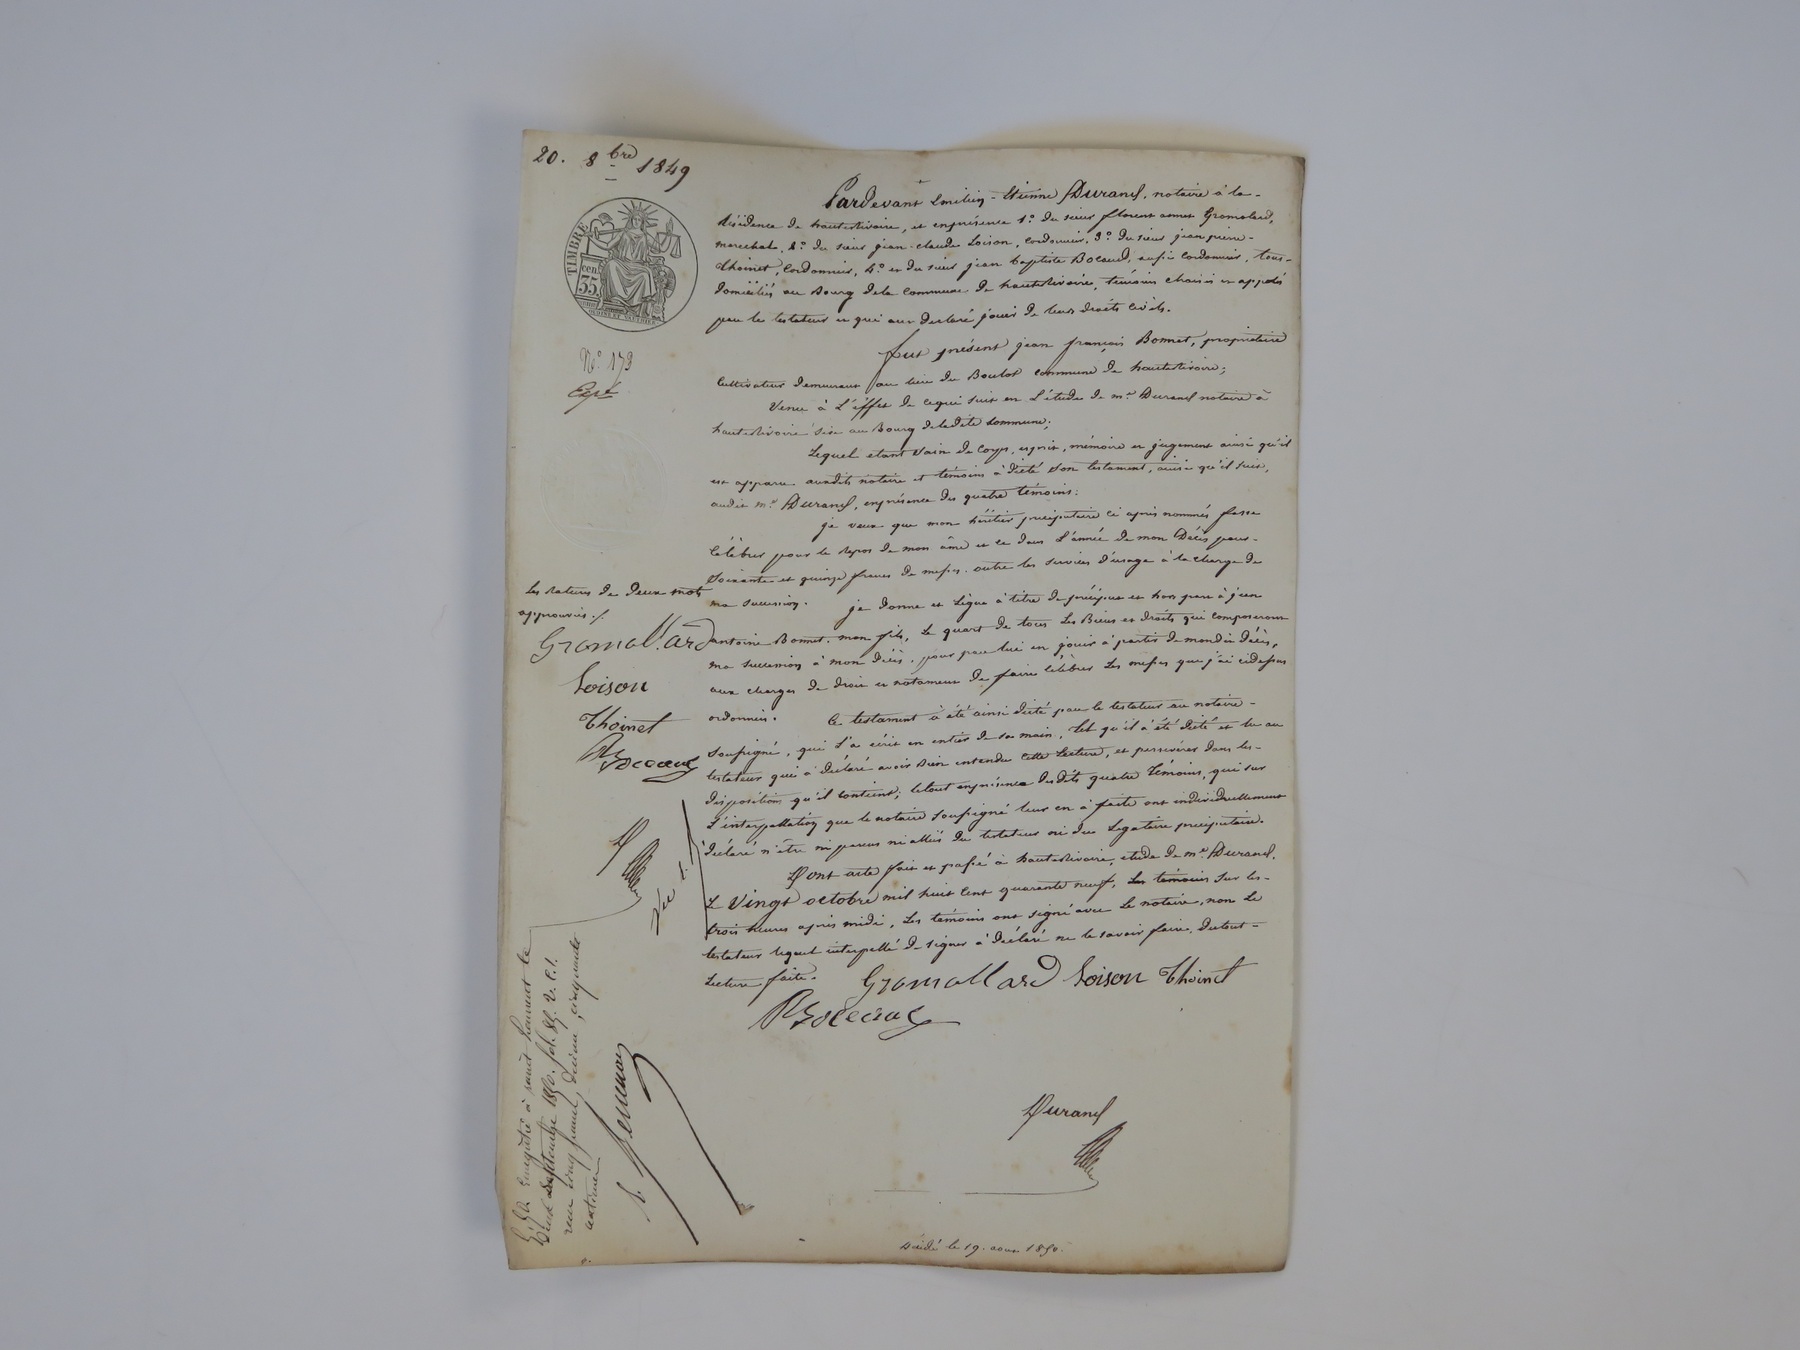 20. 8bre 1849
TIMBRE
cen.
35
Nº 173
Expé
Pardevant Emilien-Etienne Durand, notaire à la-
Résidence de hauterivoire, et enprésence 1º du sieur florent Gromolard,
marechal, 2º du sieur jean-claude Loison, cordonnier, 3º du sieur jean pierre-
Thoinet, Cordonnier, 4º et du sieur jean baptiste Bocaud, aussi Cordonnier, tous-
domiciliés au Bourg dela Commune de hauterivoire, témoins choisis et appelés
par le testateur et qui ont declaré jouir de leurs droits Civils.
fut présent jean françois Bonnet, propriétaire
Cultivateur demeurant au lieu du Boulot commune de hauterivoire;
Venu à L'effet de cequi suit en L'étude de me Durand notaire à
hauterivoire sise au Bourg deladite Commune;
Lequel etant Sain de Corps, esprit, mémoire et jugement ainsi qu'il
est apparu auxdits notaire et témoins à dicté Son testament, ainsi qu'il suit,
audit me Durand, enprésence des quatre témoins:
je veux que mon héritier preciputaire ci après nommés fasse
Célébrer pour le repos de mon âme et ce dans L'année de mon Décès pour-
Soixante et quinze francs de messes. outre les services d'usage à la charge de
ma succession. je donne et Lègue à titre de préciput et hors part à jean
antoine Bonnet. mon fils, Le quart de tous Les Biens et droits qui composeront
ma succession à mon Décès, pour par lui en jouir à partir de mondit Décès,
aux charges de droit et notament de faire Célébrer Les messes que j'ai cidessus
ordonnées. Ce testament à été ainsi dicté par le testateur au notaire-
Soussigné, qui L'a écrit en entier de sa main, tel qu'il à été dicté et lu au
testateur qui à déclaré avoir bien entendu Cette Lecture, et persévérer dans les-
dispositions qu'il contient; letout enprésence desdits quatre témoins, qui sur
L'interpellation que le notaire soussigné leur en à faite ont individuellement
déclaré n'être ni parens ni alliés du testateur ni du Légataire preciputaire.
Dont acte fait et passé à hauterivoire, etude de me Durand.
Le Vingt octobre mil huit Cent quarante neuf, Les témoins Sur les-
trois heures après midi, Les témoins ont signé avec Le notaire, non Le
testateur lequel interpellé de signer à déclaré ne le savoir faire, dutout-
Lecture faite. Gromollard Loison Thoinet
Bocaud
Durand
Décédé le 19. aout 1850.
Les ratures de deux mots
approuvés ./.
Gromollard
Loison
Thoinet
Bocaud
D
Enregistré à saint Laurent le
septembre 1850. fol. 89. V. C. 1.
reçu cinq francs, décime, cinquante
centimes